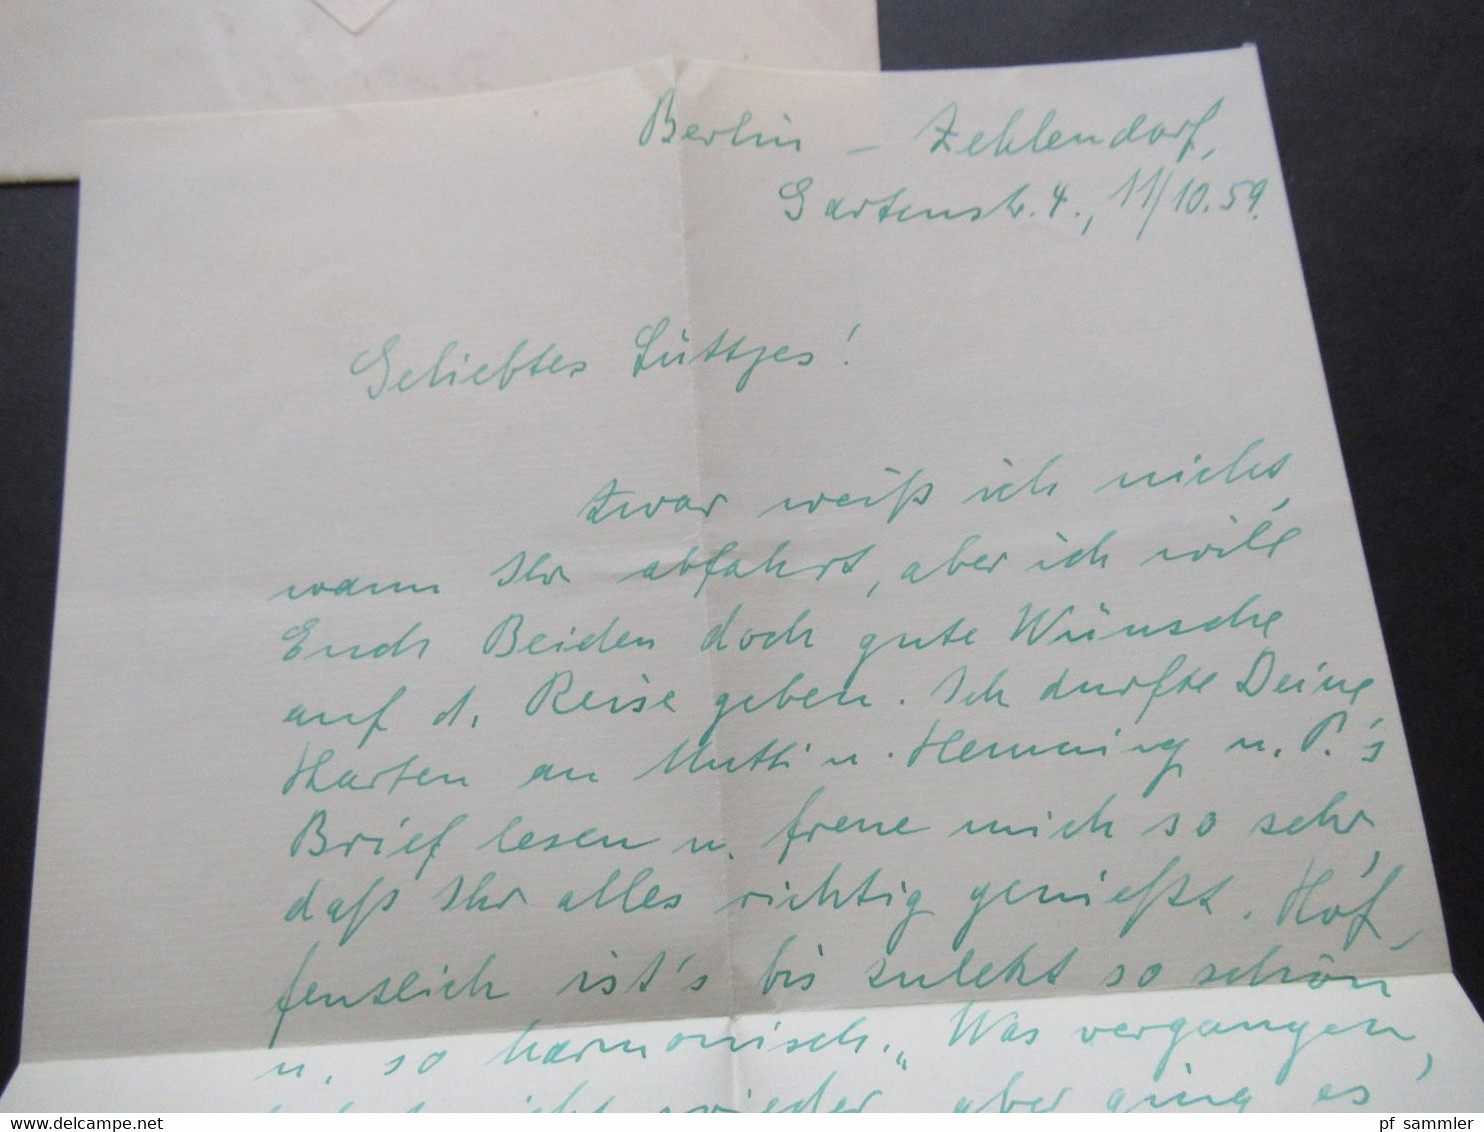 Berlin – Zehlendorf,
Gartenstr. 4., 11/10.59.
Geliebtes Lüttges!
Zwar weiß ich nicht,
wann Ihr abfahrt, aber ich will
Euch Beiden doch gute Wünsche
auf d. Reise geben. Ich durfte Deine
Karten an Mutti u. Henning u. P.'s
Brief lesen u. freue mich so sehr,
daß Ihr alles richtig genießt. Hof-
fentlich ist's bis zuletzt so schön
u. so harmonisch. „Was vergangen,
kehrt nicht wieder, aber ging es
pf sammler